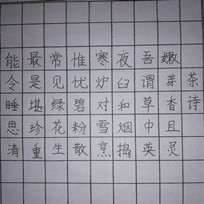 茶诗
嫩芽香且灵
吾谓草中英
夜臼和烟捣
寒炉对雪烹
惟忧碧粉散
常见绿花生
最是堪珍重
能令睡思清